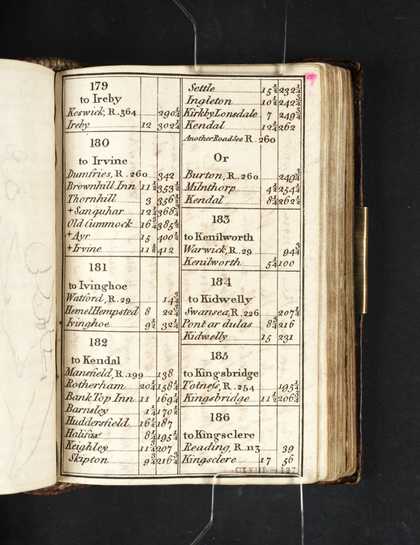 179
to Ireby
Keswick, R. 364 290¼
Ireby 12 302¼
180
to Irvine
Dumfries, R. 260 342
Brownhill Inn 11¾ 353¾
Thornhill 3 356¾
+Sanquhar 12 368¾
Old Cumnock 16¾ 385½
+Ayr 15 400½
+Irvine 11½ 412
181
to Ivinghoe
Watford, R. 29 14¾
Hemel Hempsted 8 22¾
Ivinghoe 9½ 32¼
182
to Kendal
Mansfield, R. 199 138
Rotherham 20¼ 158¼
Bank Top Inn 11 169¼
Barnsley 1¼ 170½
Huddersfield 16½ 187
Halifax 8¼ 195¼
Keighley 11¾ 207
Skipton 9¾ 216¾
Settle 15½ 232¼
Ingleton 10½ 242¾
Kirkby Lonsdale 7 249¾
Kendal 12¼ 262
Another Road See R. 260
Or
Burton, R. 260 249¾
Milnthorp 4½ 254¼
Kendal 8¼ 262½
183
to Kenilworth
Warwick, R. 29 94¾
Kenilworth 5¼ 100
184
to Kidwelly
Swansea, R. 226 207¼
Pont ar dulas 8¾ 216
Kidwelly 15 231
185
to Kingsbridge
Totnes, R. 254 195¼
Kingsbridge 11½ 206¾
186
to Kingsclere
Reading, R. 113 39
Kingsclere 17 56